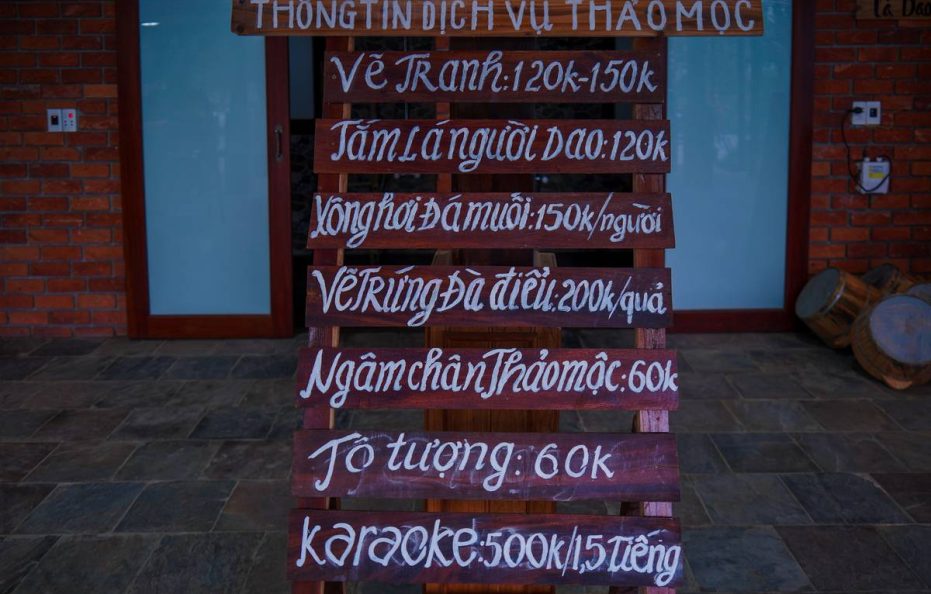 THÔNG TIN DỊCH VỤ THẢO MỘC
Lá Dao
Vẽ Tranh: 120k-150k
Tắm Lá người Dao: 120k
Xông hơi Đá muối: 150k/người
Vẽ Trứng Đà điểu: 200k/quả
Ngâm chân Thảo mộc: 60k
Tô tượng: 60k
karaoke: 500k/1,5 Tiếng